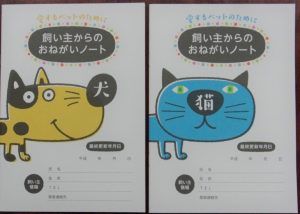 愛するペットのために
飼い主からの
おねがいノート
犬
最終更新年月日
平成 年 月 日
飼い主
情報
氏名
住所
TEL
緊急連絡先
愛するペットのために
飼い主からの
おねがいノート
猫
最終更新年月日
平成 年 月 日
飼い主
情報
氏名
住所
TEL
緊急連絡先